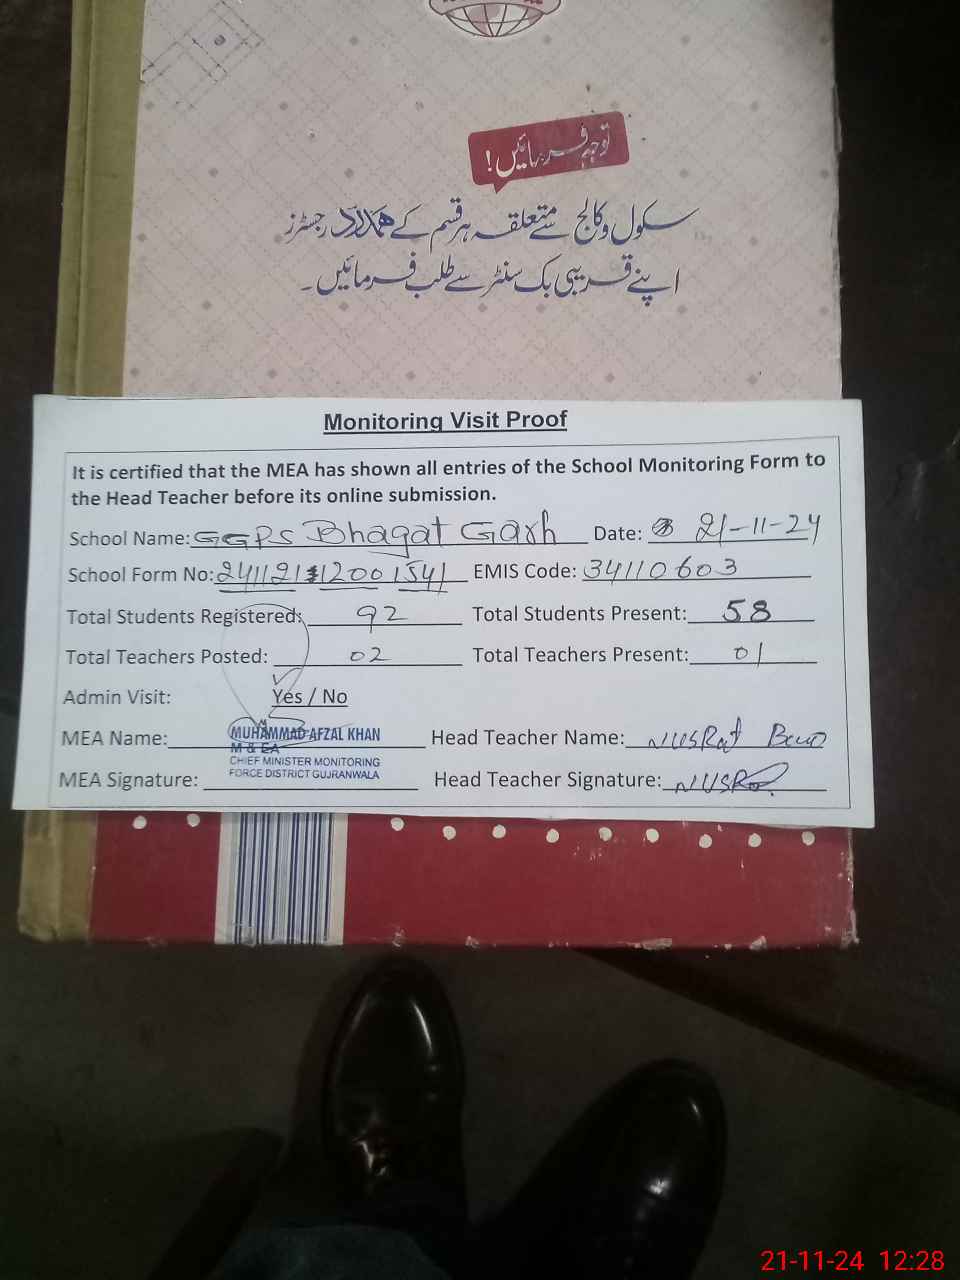 توجہ فرمائیں!
سکول و کالج سے متعلقہ ہر قسم کے ہمدرد رجسٹرز
اپنے قریبی بک سنٹر سے طلب فرمائیں۔
Monitoring Visit Proof
It is certified that the MEA has shown all entries of the School Monitoring Form to
the Head Teacher before its online submission.
School Name: GGPS Bhagat Garh Date: 21-11-24
School Form No: EMIS Code: 34110603
Total Students Registered: 92 Total Students Present: 58
Total Teachers Posted: 02 Total Teachers Present: 01
Admin Visit: Yes / No
MEA Name: MUHAMMAD AFZAL KHAN Head Teacher Name: NUSRat
M & EA
CHIEF MINISTER MONITORING
MEA Signature: FORCE DISTRICT GUJRANWALA Head Teacher Signature:
21-11-24 12:28